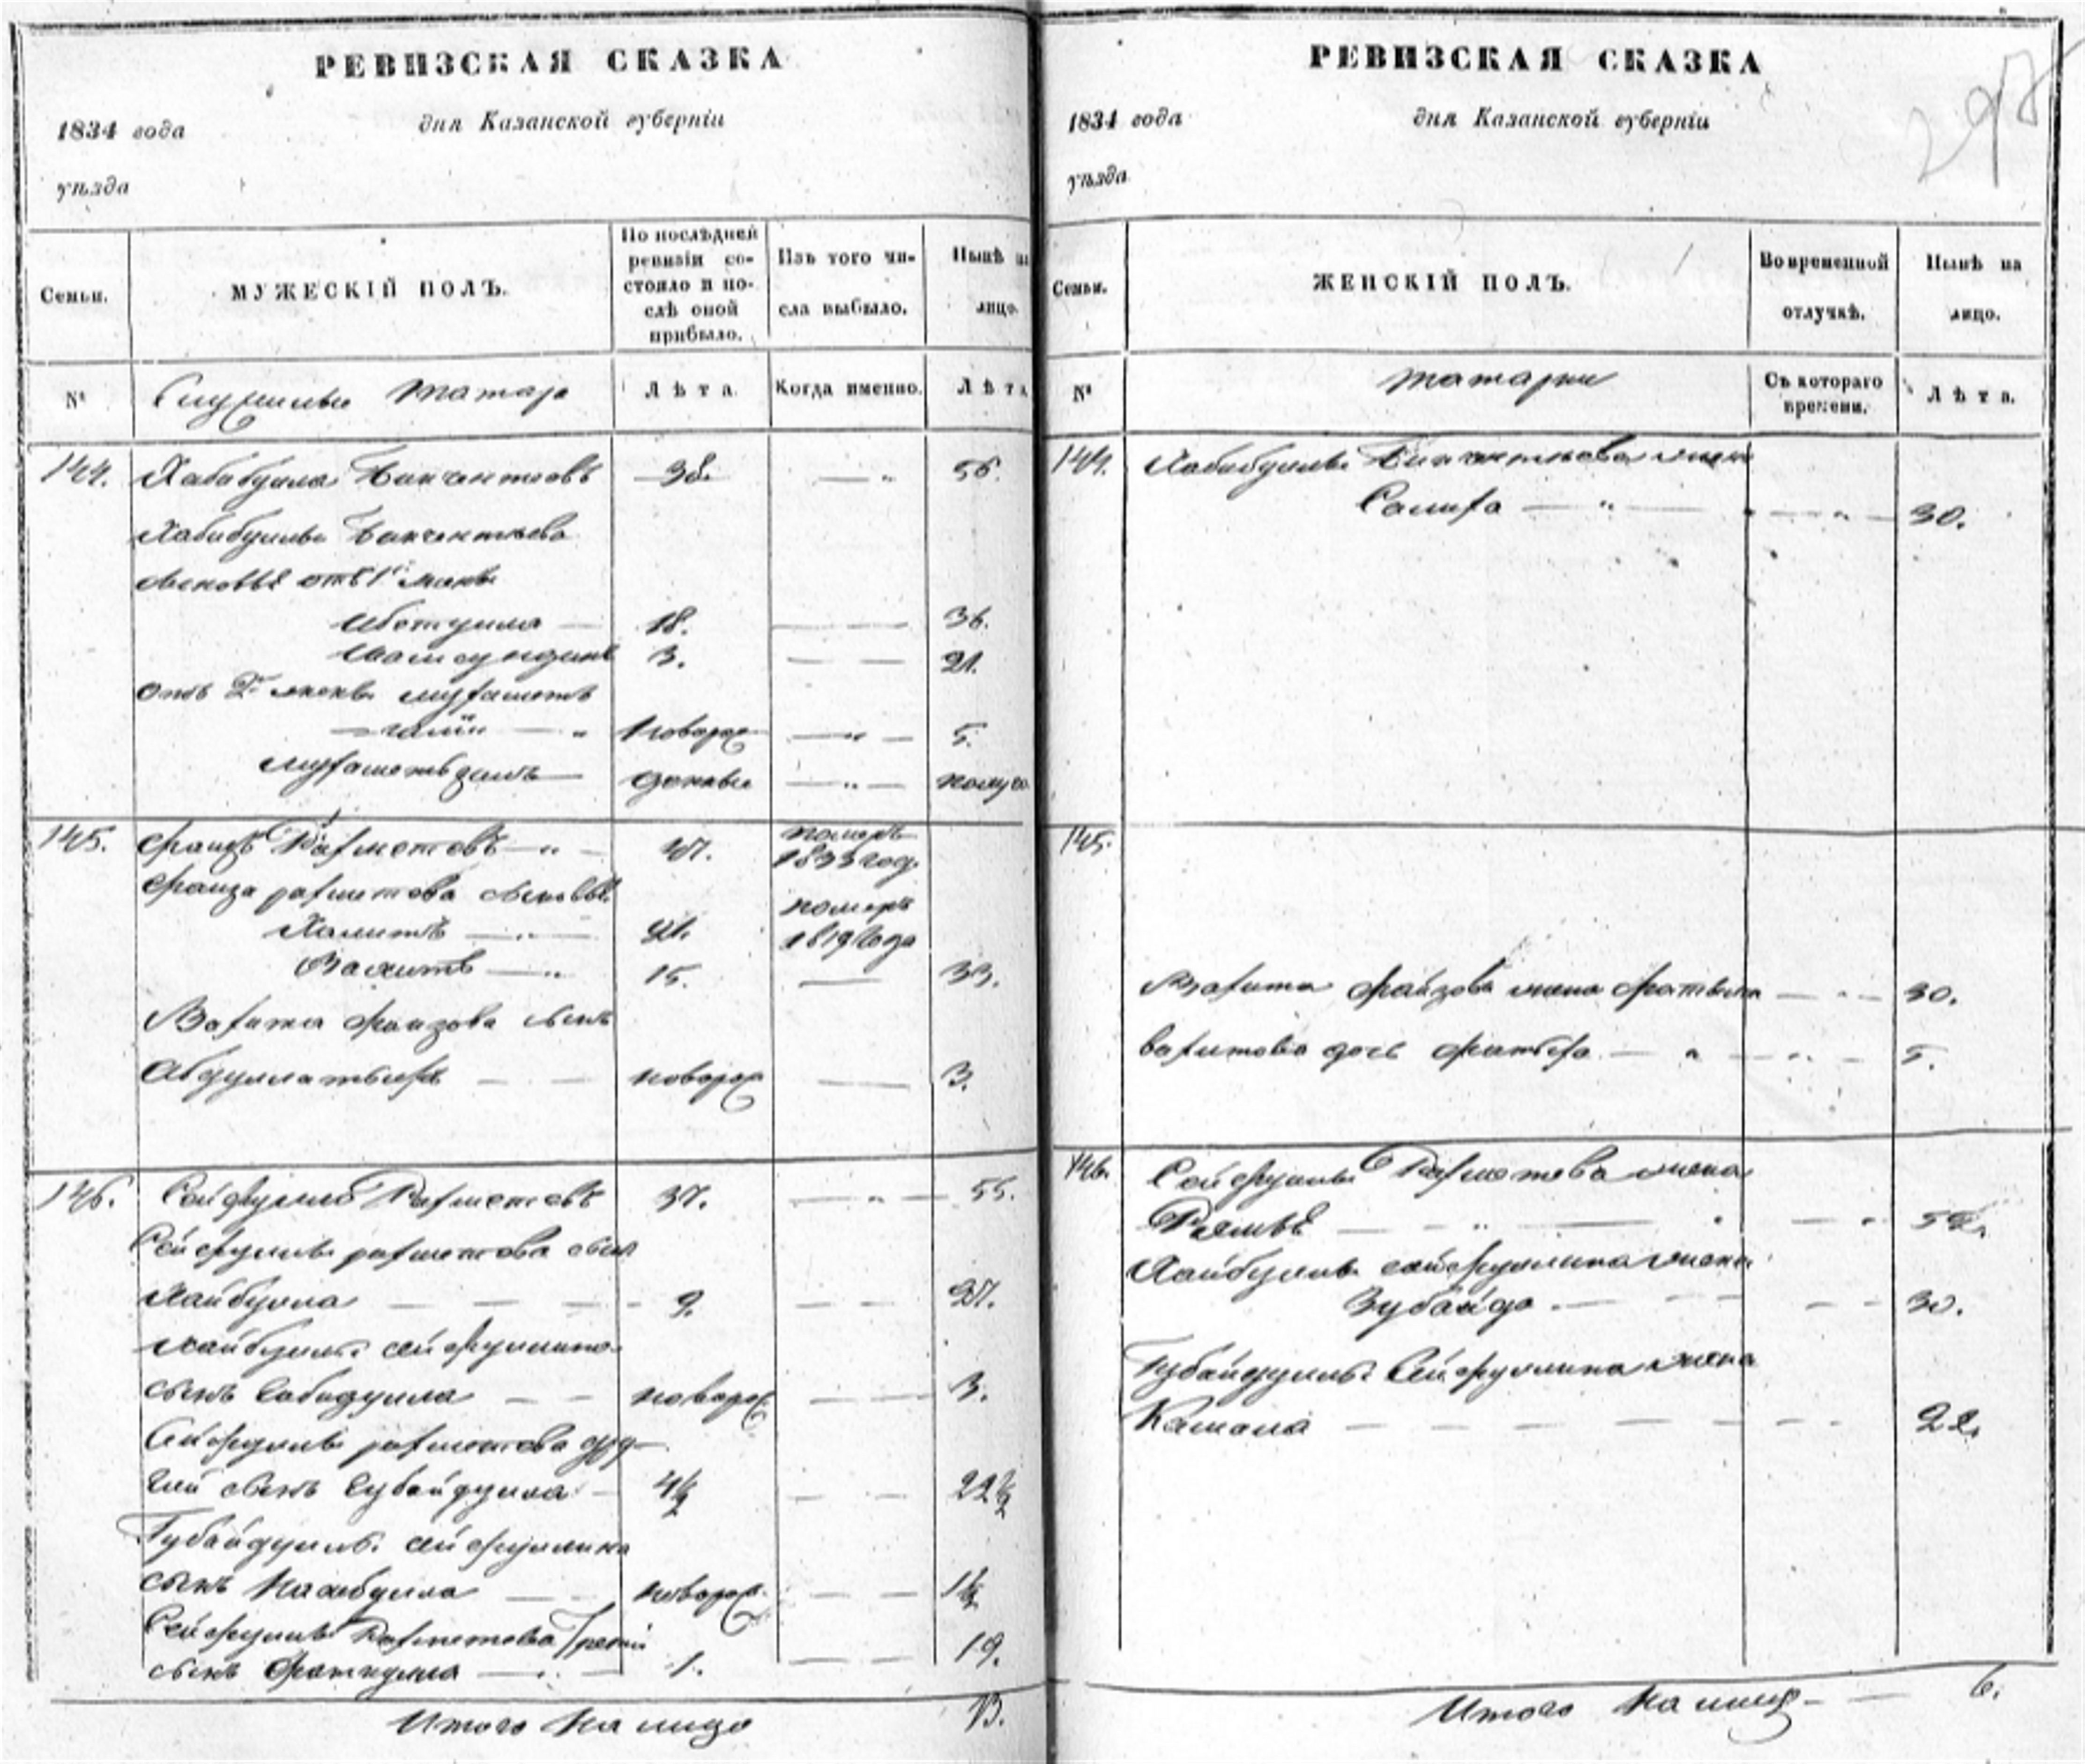 РЕВИЗСКАЯ СКАЗКА
1834 года дня Казанской губерніи
уѣзда
Семьи.
МУЖЕСКІЙ ПОЛЪ.
По послѣдней ревизіи состояло и послѣ оной прибыло.
Изъ того числа выбыло.
Нынѣ на лицо.
№
татар
Лѣта.
Когда именно.
Лѣта
144. Хабибулла Бикчентеевъ 38. 56.
Хабибуллы Бикчентеева
сыновья отъ 1й жены
18. 36.
3. 21.
отъ 2й жены Мухаметъ
галии новорож 5.
Мухаметьзянъ
145. Фаизъ Рахметовъ 47. померъ 1833 год.
Фаиза рахметова сыновья
Халитъ 21. померъ 1819 года
Вахитъ 15. 33.
Вахита Фаизова сынъ
Абдуллатыфъ новорож 3.
146. Сейфулла Рахметовъ 37. 55.
Сейфуллы рахметова сын
Хайбулла 9. 27.
Хайбуллы сейфуллина
сынъ Сабидулла новорож 3.
Сейфуллы рахметова дру-
гой сынъ Губайдулла 4½ 22½
Губайдуллы сейфуллина
сынъ новорож. 1½
Сейфуллы Рахметова третій
сынъ Фаткулла 1. 19.
Итого на лицо 13.
РЕВИЗСКАЯ СКАЗКА
297
1834 года дня Казанской губерніи
уѣзда
Семьи.
ЖЕНСКІЙ ПОЛЪ.
Во временной отлучкѣ.
Нынѣ на лицо.
№
татарки
Съ котораго времени.
Лѣта.
144. Хабибуллы Бикчентеева жена
Салиха 30.
145.
Вахита Фаизова жена 30.
вахитова дочь 5.
146. Сейфуллы Рахметова жена
52.
Хайбуллы сейфуллина жена
Зубайда 30.
Губайдуллы Сейфуллина жена
Камала 22.
Итого на лицо 6.